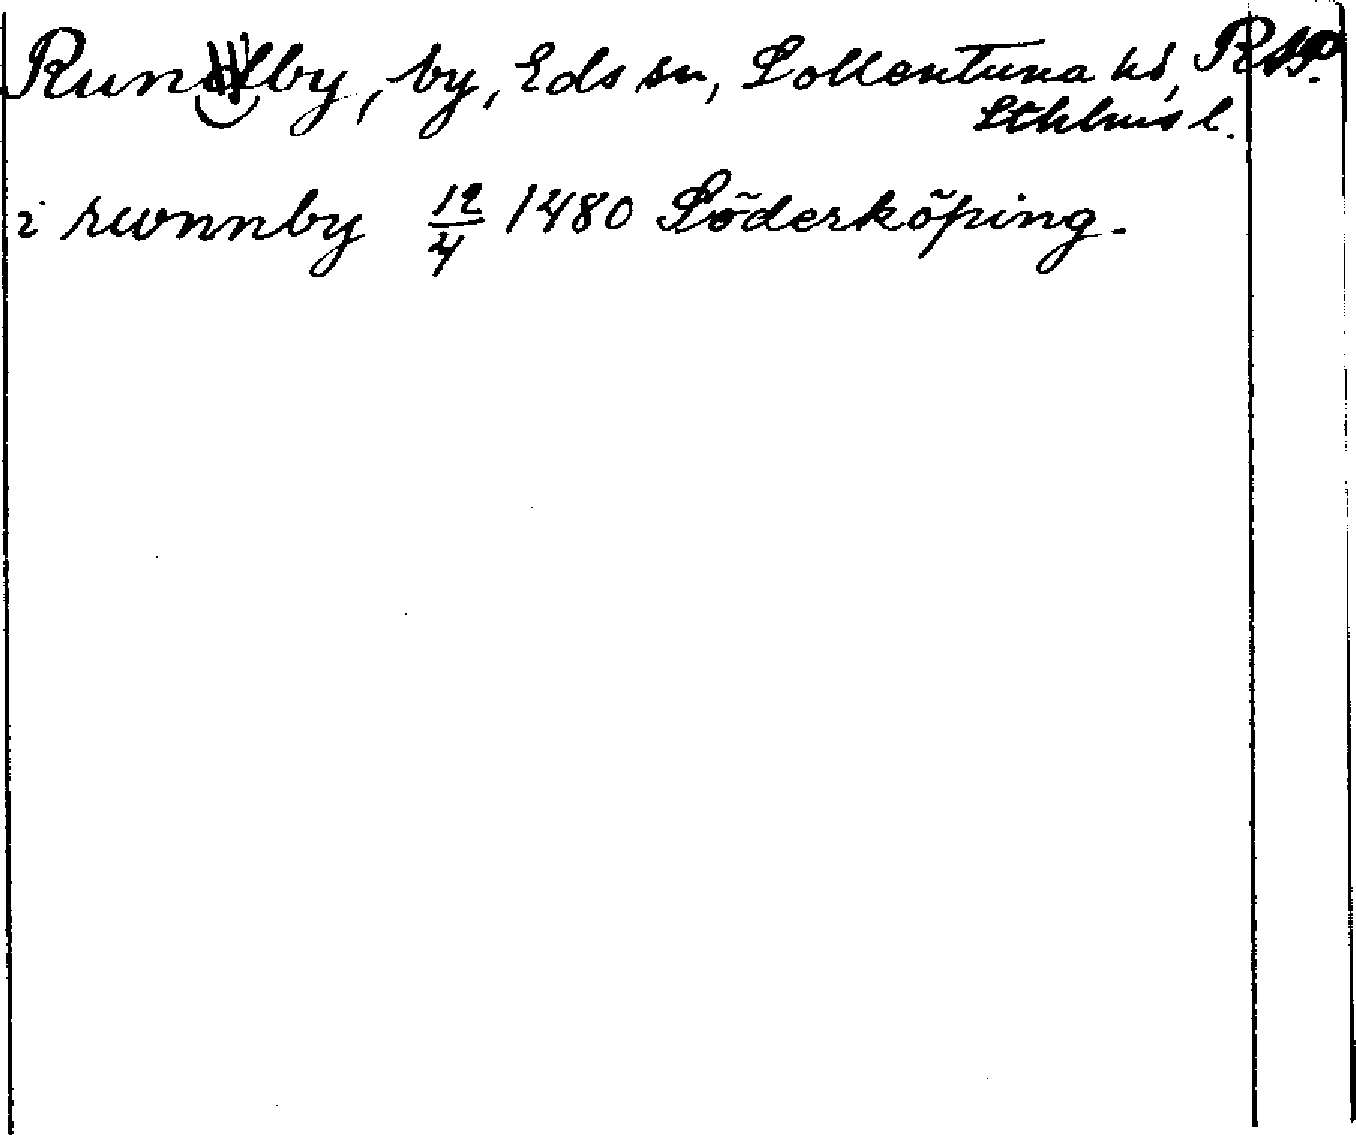 Runby, by, Eds sn, Sollentuna hd, RAp.
Sthlms l.
i rwnnby 12/4 1480 Söderköping.